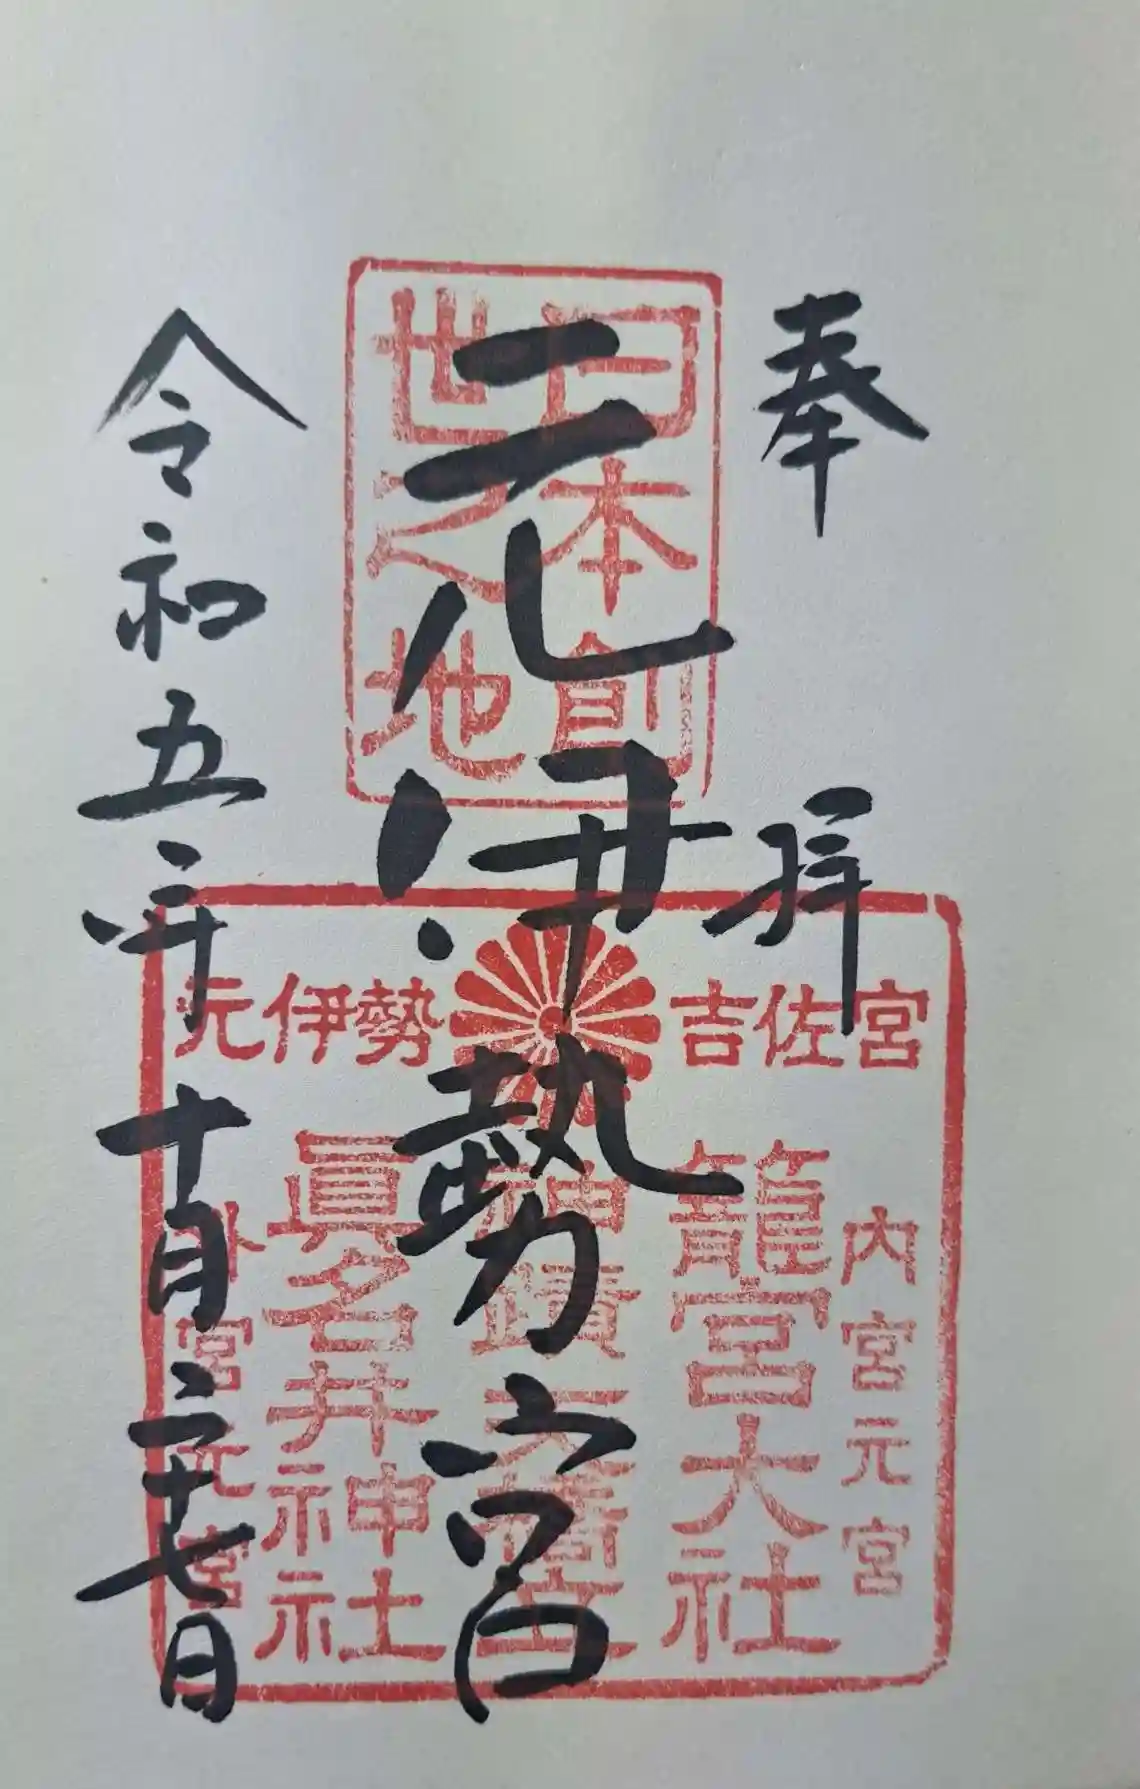 奉拝
元伊勢宮
令和五年十月二十七日
日本創
世之地
吉佐宮
元伊勢
内宮元宮
籠宮大社
神蹟天橋立
眞名井神社
外宮元宮